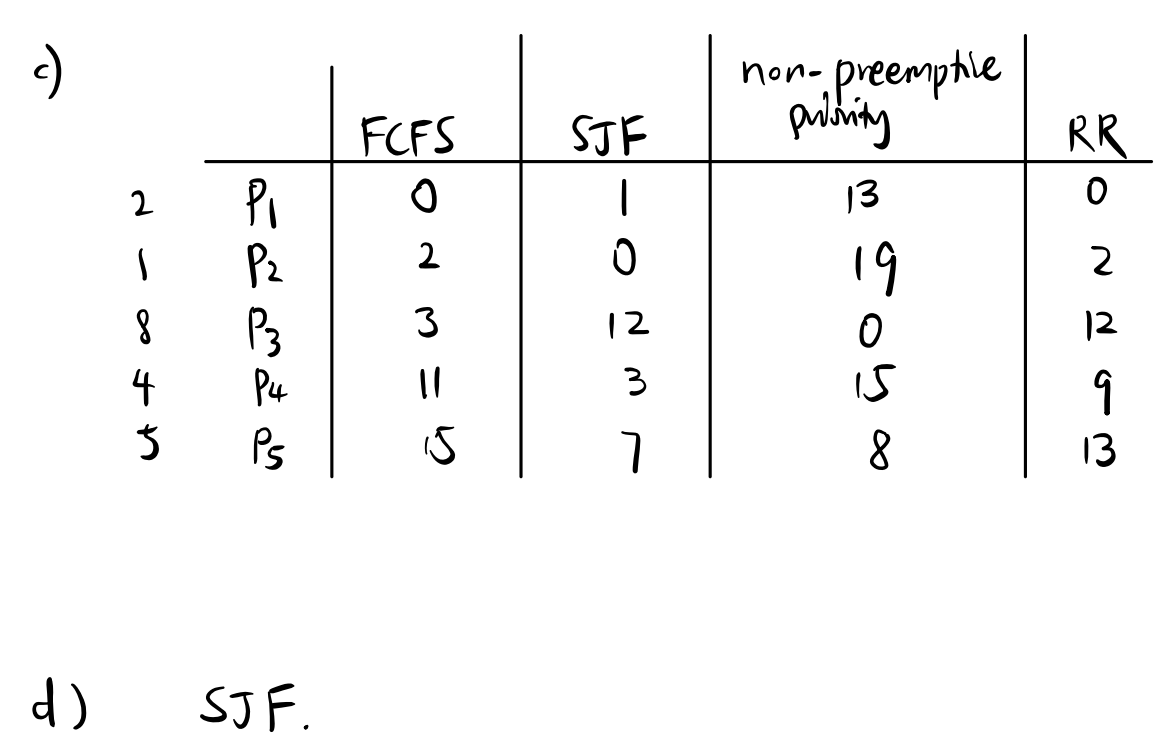 c)
non-preemptive
priority
FCFS SJF RR
2 P1 0 1 13 0
1 P2 2 0 19 2
8 P3 3 12 0 12
4 P4 11 3 15 9
5 P5 15 7 8 13
d) SJF.